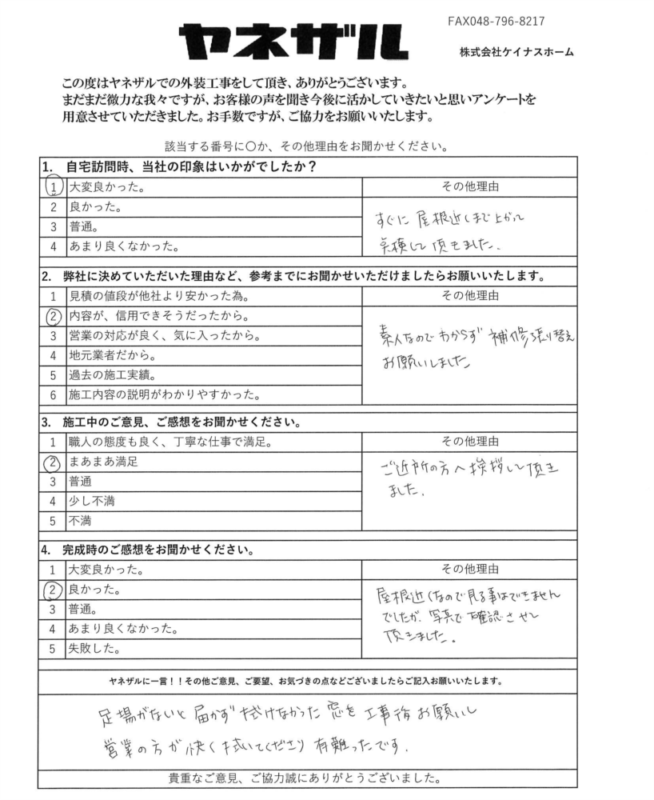 FAX048-796-8217
ヤネザル
株式会社ケイナスホーム
この度はヤネザルでの外装工事をして頂き、ありがとうございます。
まだまだ微力な我々ですが、お客様の声を聞き今後に活かしていきたいと思いアンケートを
用意させていただきました。お手数ですが、ご協力をお願いいたします。
該当する番号に〇か、その他理由をお聞かせください。
1. 自宅訪問時、当社の印象はいかがでしたか？
1 大変良かった。
2 良かった。
3 普通。
4 あまり良くなかった。
その他理由
すぐに屋根近くまで上がって
点検して頂きました.
2. 弊社に決めていただいた理由など、参考までにお聞かせいただけましたらお願いいたします。
1 見積の値段が他社より安かった為。
2 内容が、信用できそうだったから。
3 営業の対応が良く、気に入ったから。
4 地元業者だから。
5 過去の施工実績。
6 施工内容の説明がわかりやすかった。
その他理由
素人なのでわからず 補修張り替え
お願いしました
3. 施工中のご意見、ご感想をお聞かせください。
1 職人の態度も良く、丁寧な仕事で満足。
2 まあまあ満足
3 普通
4 少し不満
5 不満
その他理由
ご近所の方へ挨拶して頂き
ました.
4. 完成時のご感想をお聞かせください。
1 大変良かった。
2 良かった。
3 普通。
4 あまり良くなかった。
5 失敗した。
その他理由
屋根近くなので見る事はできません
でしたが、写真で確認させて
頂きました。
ヤネザルに一言！！その他ご意見、ご要望、お気づきの点などございましたらご記入お願いいたします。
足場がないと届かず拭けなかった窓を工事後お願いし
営業の方が快く拭いてくださり有難ったです.
貴重なご意見、ご協力誠にありがとうございました。